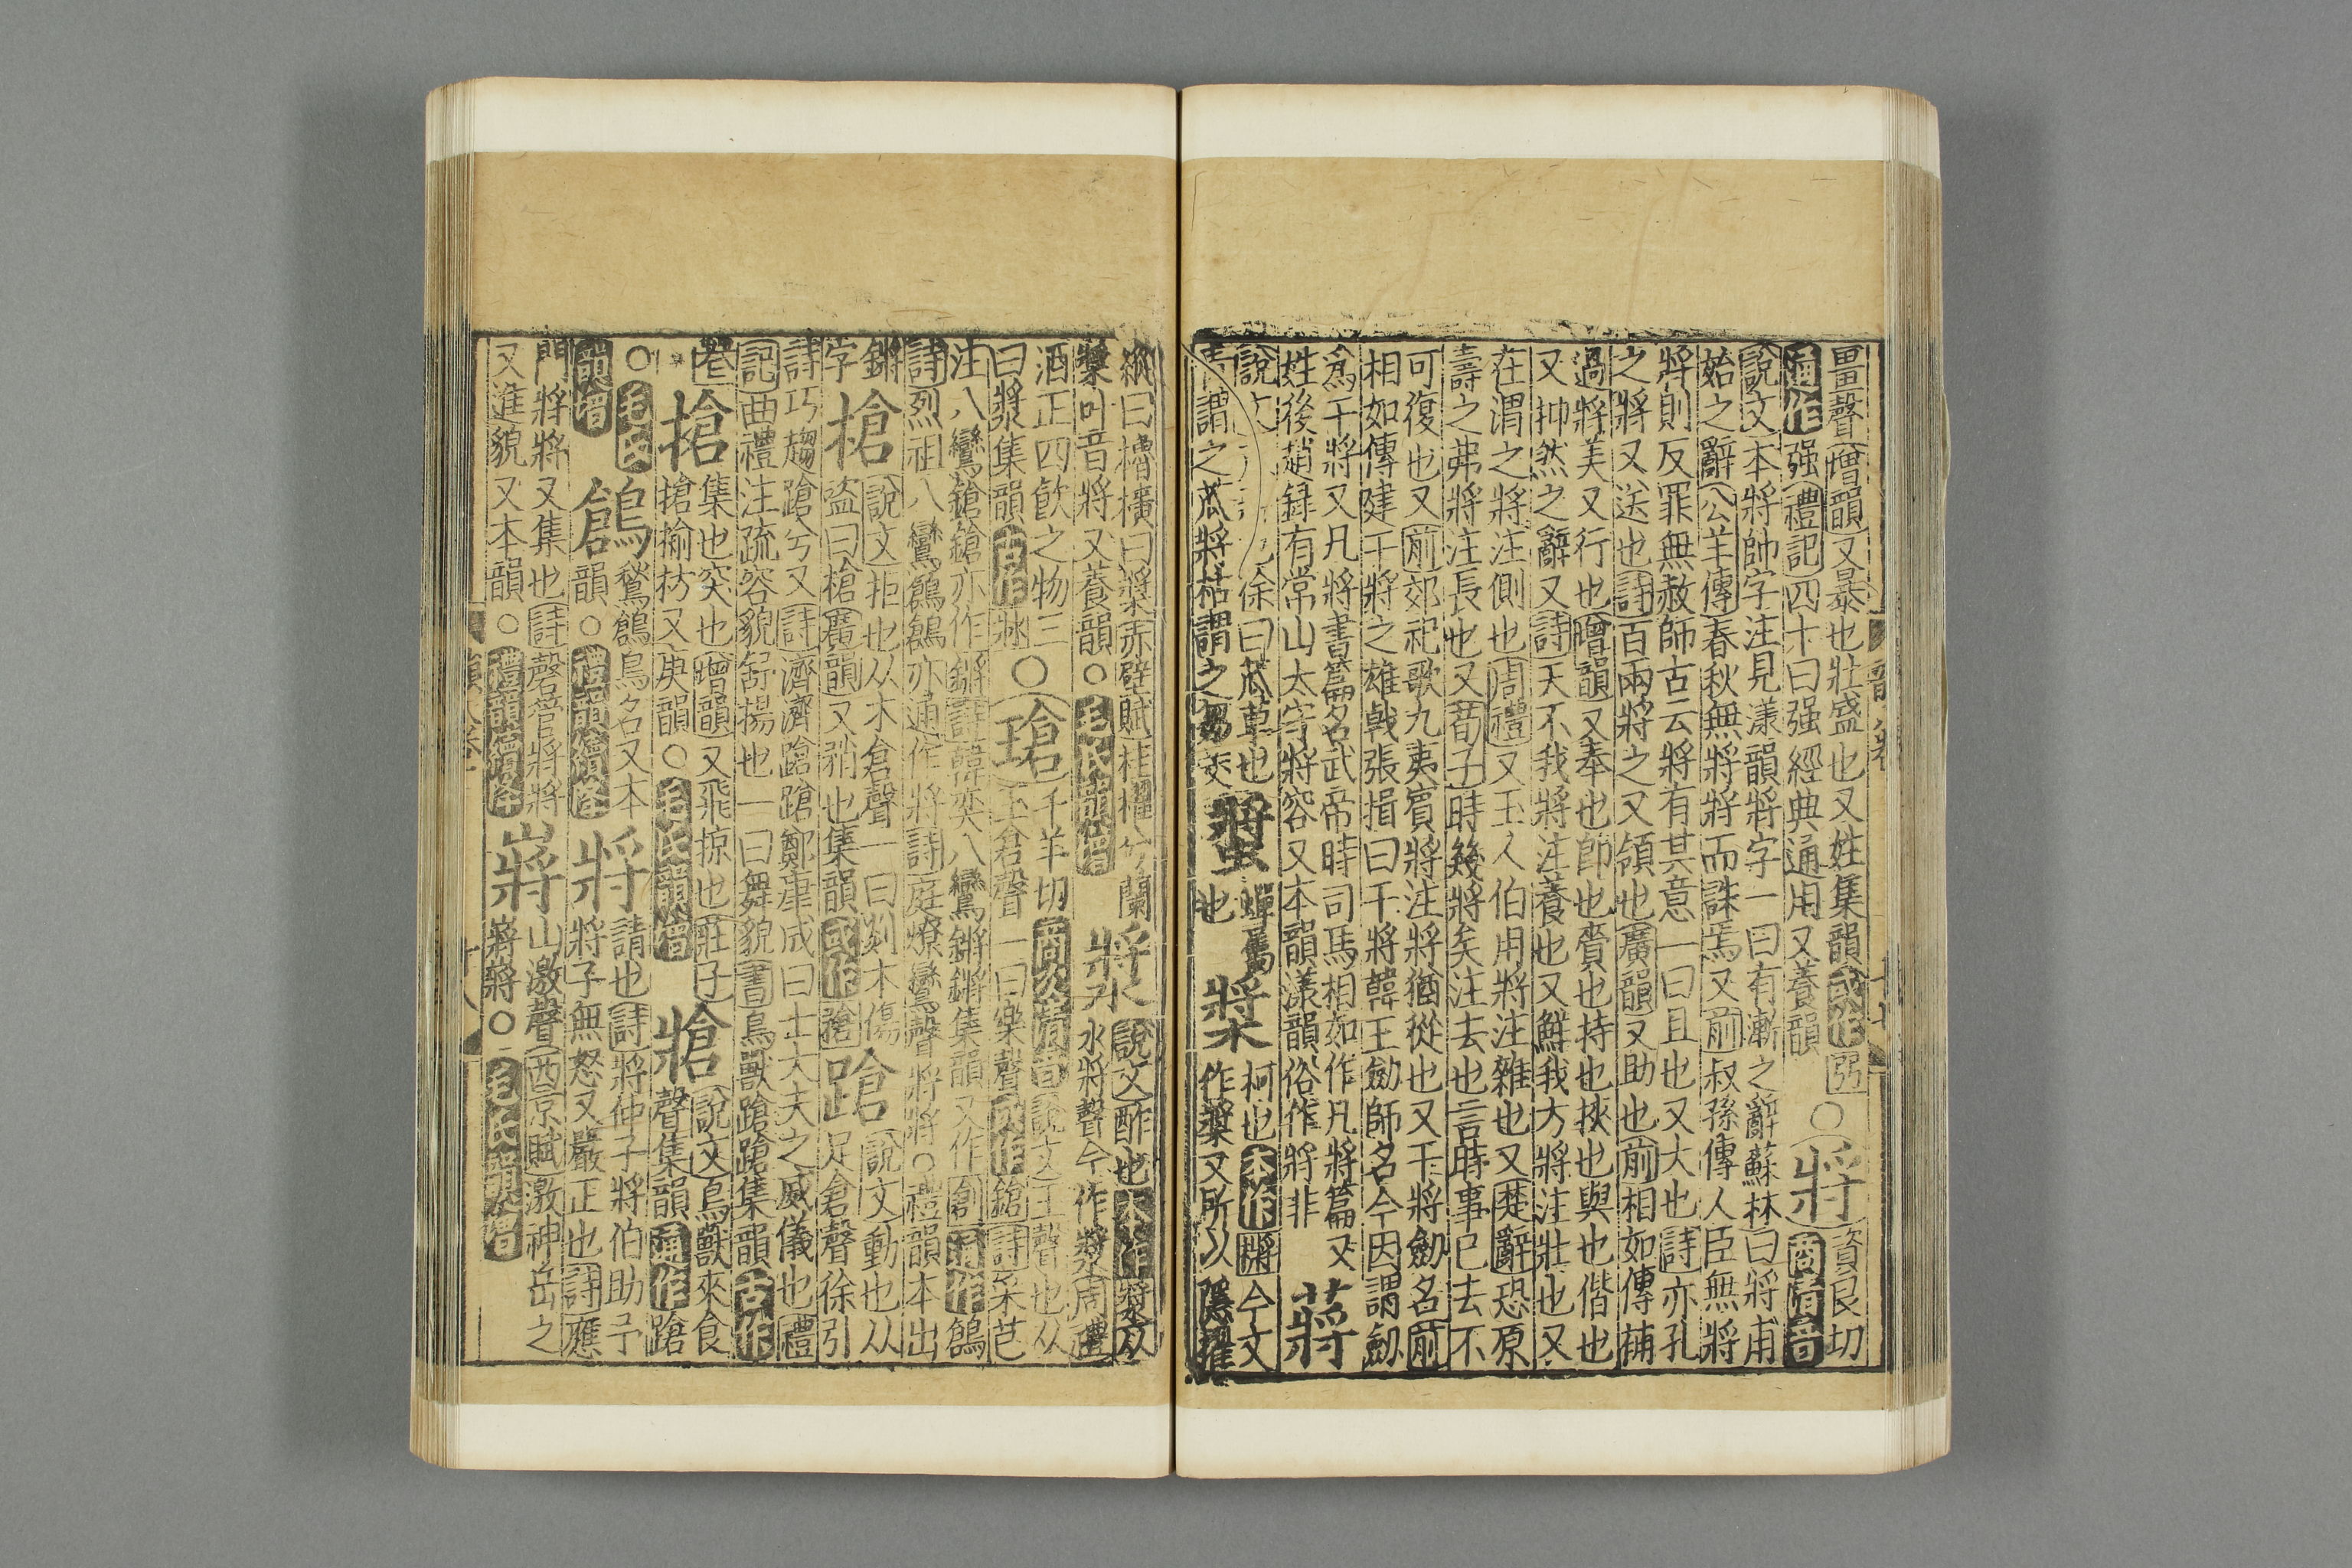 畺聲增韻又暴也壯盛也又姓集韻或作弜○將資良切
通作强禮記四十曰强經典通用又養韻　商清音
說文本將帥字注見漾韻將字一曰有漸之辭蘇林曰將甫
始之辭公羊傳春秋無將將而誅焉又前叔孫傳人臣無將
將則反罪無赦師古云將有其意一曰且也又大也詩亦孔
之將又送也詩百兩將之又領也廣韻又助也前相如傳補
過將美又行也增韻又奉也卽也賫也持也挾也與也偕也
又抑然之辭又詩天不我將注養也又鮮我方將注壯也又
在渭之將注側也周禮又玉人伯用將注雜也又楚辭恐原
壽之弗將注長也又荀子時幾將矣注去也言時事已去不
可復也又前郊祀歌九夷賓將注將猶從也又干將劒名前
相如傳建干將之雄戟張揖曰干將韓王劒師名今因謂劒
爲干將又凡將書篇名武帝時司馬相如作凡將篇又
姓後趙錄有常山太守將容又本韻漾韻俗作將非　蔣
說文　徐曰菰草也
謂之菰將枯謂之芻茭　螿蟬屬也　槳柯也本作㯍今文作槳又所以隱櫂
縱曰櫓橫曰槳赤壁賦桂櫂兮蘭　漿說文酢也本作㢡从
槳叶音將又養韻○毛氏韻增　水將聲今作漿周禮
酒正四飮之物三　千羊切商次清音說文玉聲也从
曰漿集韻古作㳈○瑲玉倉聲一曰樂聲或作鎗詩采芑
注八鸞鎗鎗亦作鏘詩韓奕八鸞鏘鏘集韻又作創通作鶬
詩烈祖八鸞鶬鶬亦通作將詩庭燎鸞聲將將○禮韻本出
鏘　說文拒也从木倉聲一曰剡木傷　說文動也从
字　槍盜曰槍廣韻又矟也集韻或作搶　蹌足倉聲徐引
詩巧趨蹌兮又詩濟濟蹌蹌鄭康成曰士大夫之威儀也禮
記曲禮注疏容貌舒揚也一曰舞貌書鳥獸蹌蹌集韻古作
　集也突也增韻又飛掠也莊子　說文鳥獸來食
搶搶揄枋又庚韻○毛氏韻增　牄聲集韻通作蹌
○毛氏　鶬鶖鶬鳥名又本　請也詩將仲子將伯助予
韻增　韻○禮韻續降　將將子無怒又嚴正也詩應
門將將又集也詩磬筦將將　山激聲西京賦激神岳之
又進貌又本韻○禮韻續降　嶈嶈嶈○毛氏韻增